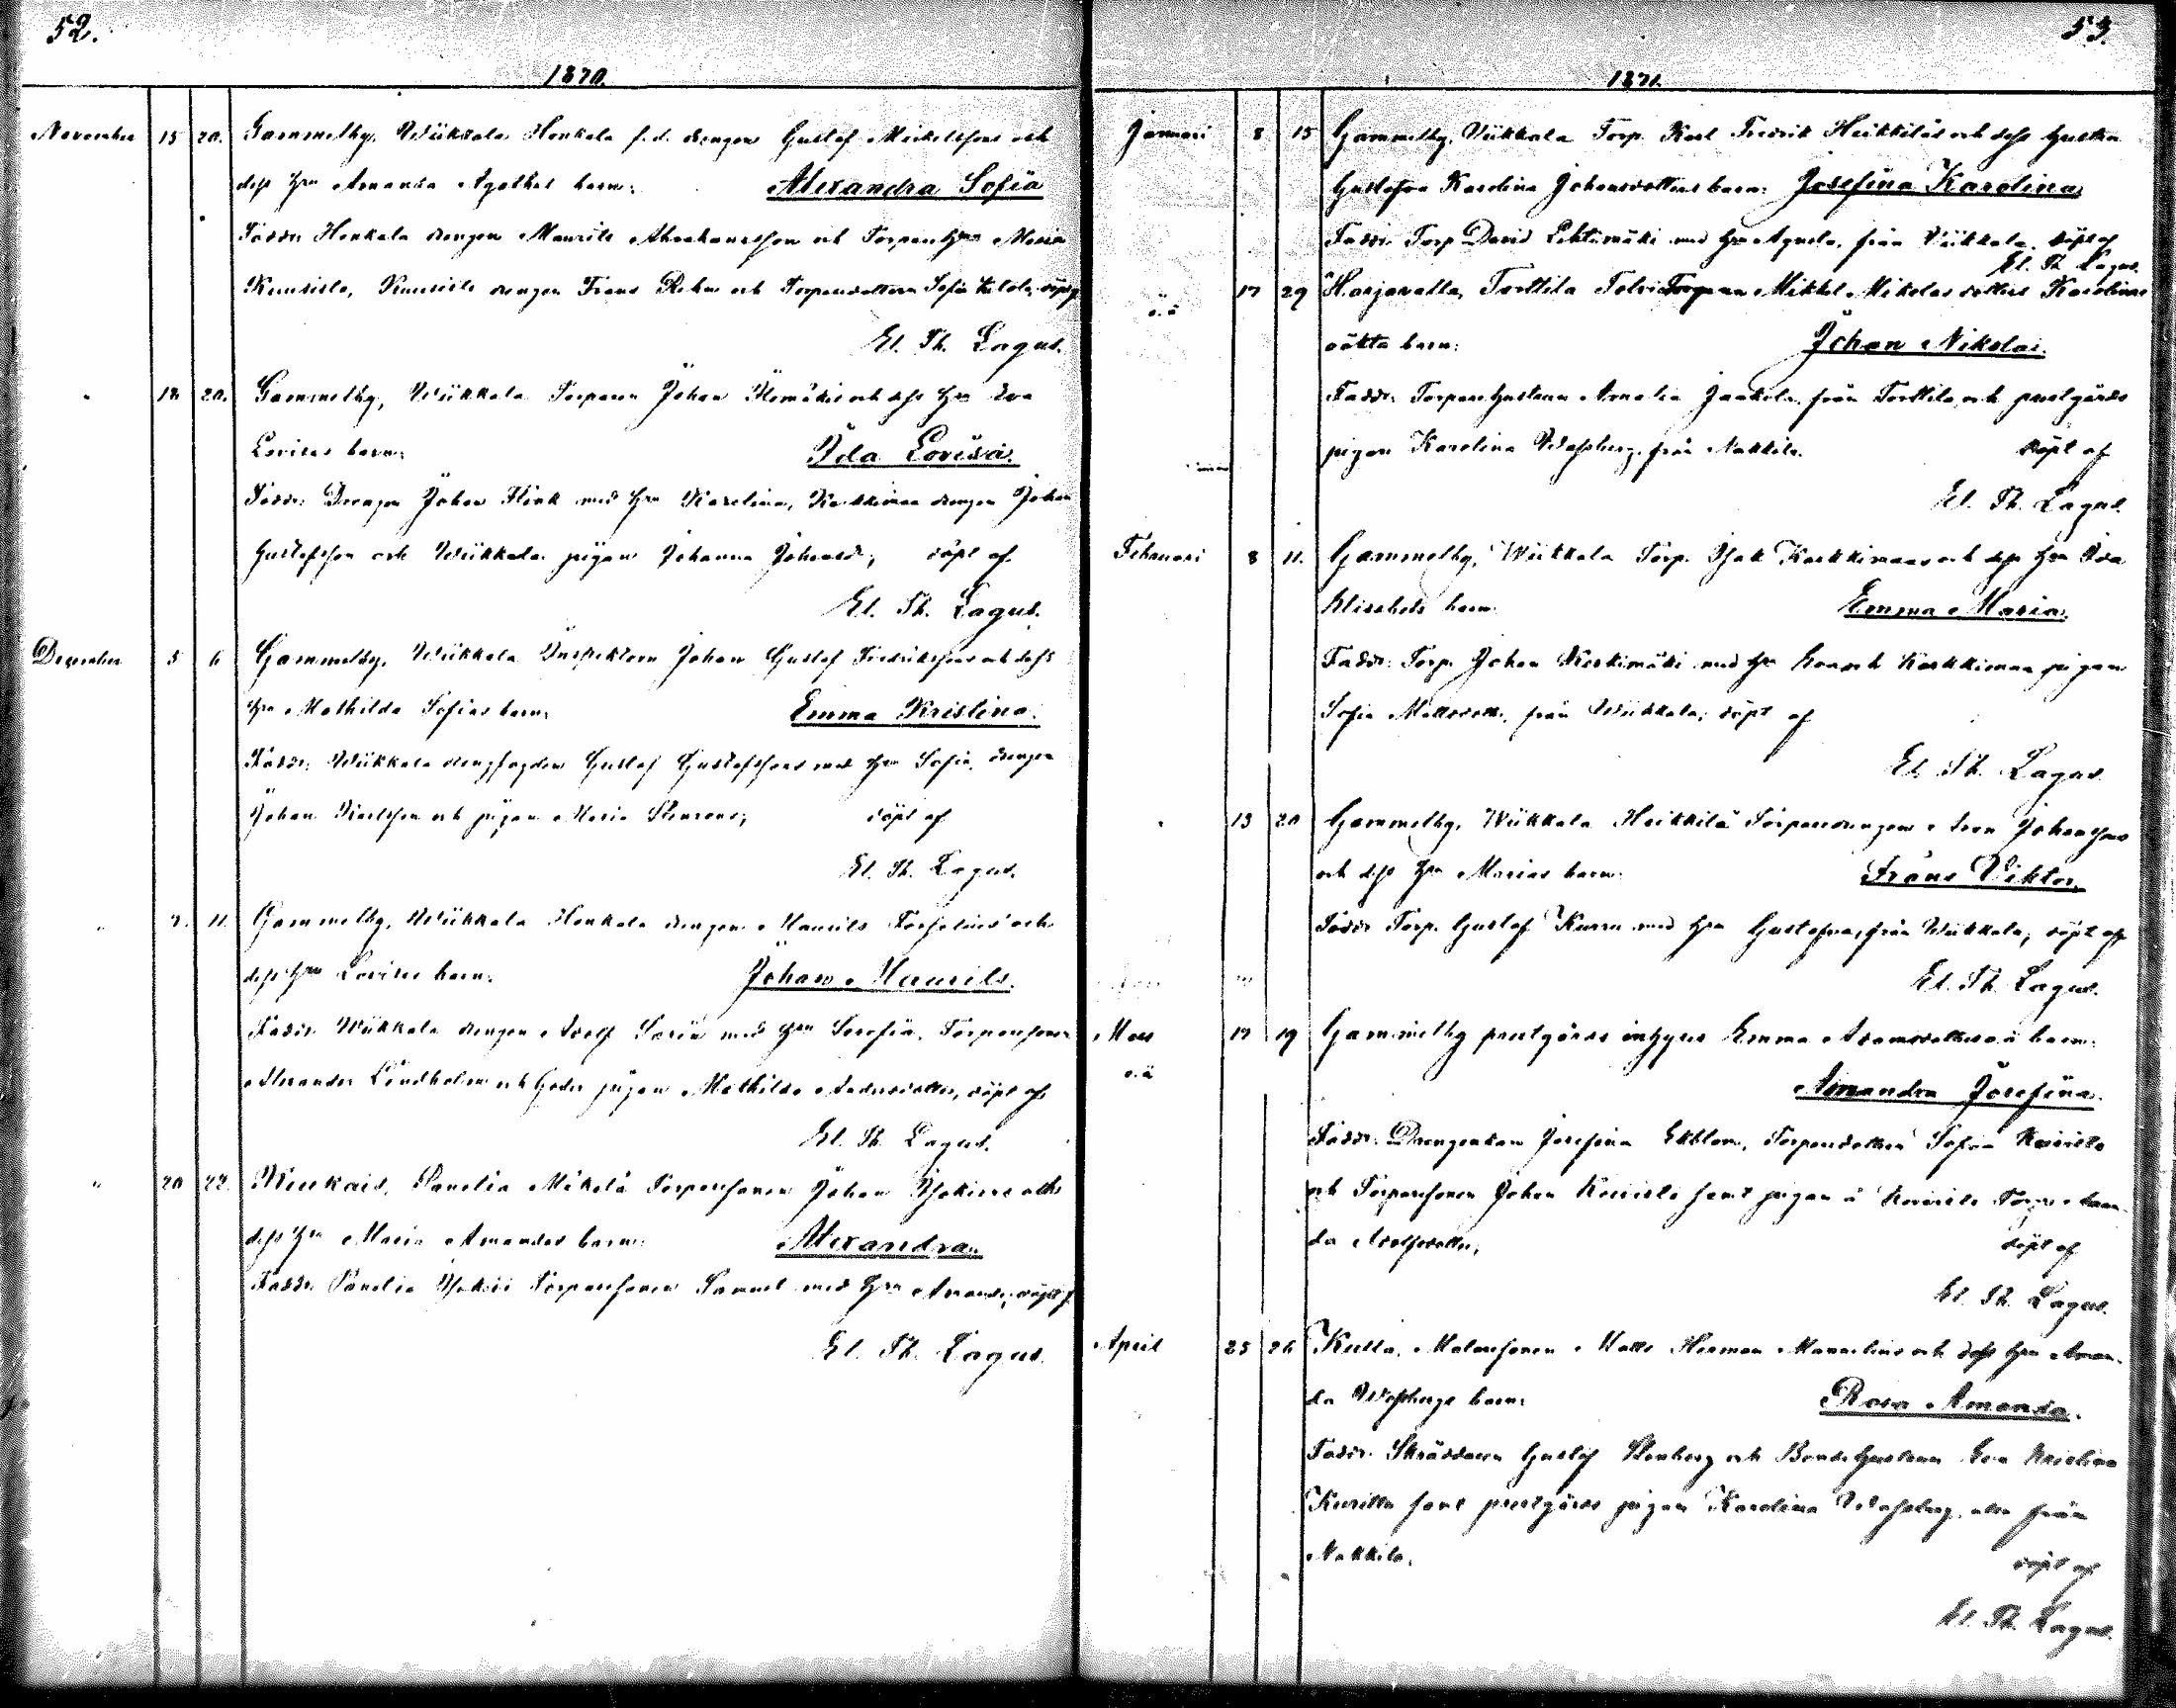 52.
1870.
November 15 20. Gammelby, Wiikkala Honkala f.d. drengen Gustaf Mickelssons och
dess Hru Amanda Agathas barn: Alexandra Sofia
Faddr: Honkala drengen Maurits Abrahamsson och Torparehru Maria
Kuusisto, Kuusisto drengen Frans och Torparedottern Sofia döpt af
El. Th. Lagus.
" 18 20. Gammelby, Wiikkala Torparen Johan och dess Hru Eva
Lovisas barn: Ida Lovisa.
Faddr: Drengen Johan Flink med Hru Karolina, Karkkimaa drengen Johan
Gustafsson och Wiikkala pigan Johanna Johansd:, döpt af
El. Th. Lagus.
December 5 6 Gammelby, Wiikkala Inspektoren Johan Gustaf Fredrikssons och dess
Hru Mathilda Sofias barn: Emma Kristina.
Faddr: Wiikkala drengfogden Gustaf Gustafsson med Hru Sofia, drengen
Johan Karlsson och pigan Maria döpt af
El. Th. Lagus.
" 7. 11. Gammelby, Wiikkala Honkala drengen Maurits och
dess Hru Lovisas barn: Johan Maurits.
Faddr: Wiikkala drengen Adolf med Hru Serafia, Torparesonen
Alexander Lindholm och pigan Mathilda Andersdotter, döpt af
El. Th. Lagus.
" 20 22. Kiukais, Panelia Mäkelä Torparesonen Johan och
dess Hru Maria Amandas barn: Alexandra.
Faddr: Panelia Torparesonen Samuel med Hru Amanda, döpt af
El. Th. Lagus.
53.
1871.
Januari 8 15 Gammelby, Wiikkala Torp. Karl Fredrik Heikkiläs och dess hustru
Gustafva Karolina Johansdotters barn: Josefina Karolina
Faddr: Torp David Lehtimäki med Hru Agneta, från Wiikkala, döpt af
El. Th. Lagus.
o.ä 17 29 Harjavalta, Torttila Torparen Mikkel Mikolas dotters Karolinas
oäkta barn: Johan Nikolai.
Faddr: Torparehustrun Amalia Jaakola, från Torttila, och prestgårds
pigan Karolina Wassberg, från Nakkila. döpt af
El. Th. Lagus.
Februari 8 11. Gammelby, Wiikkala Torp. Isak Karkkimaas och dess Hru Eva
Elisabets barn: Emma Maria.
Faddr: Torp. Johan Keskimäki med Hru Eva och Karkkimaa pigan
Sofia Mattsdotter, från Wiikkala; döpt af
El. Th. Lagus.
" 13 20 Gammelby, Wiikkala Heikkilä Torparedrengen Johanssons
och dess Hru Marias barn: Frans Viktor.
Faddr: Torp. Gustaf Kurru med Hru Gustafva, från Wiikkala; döpt af
El. Th. Lagus.
Mars
o.ä 17 19 Gammelby prestgårds inhyses Emma Adamsdotters o.ä barn:
Amanda Josefina.
Faddr: Drengenkan Josefina Ekblom, Torparedottern Sofia Koivisto
och Torparesonen Johan Koivisto samt pigan å Koivisto Torp Aman-
da Adolfsdotter; döpt af
El. Th. Lagus.
April 25 26 Kulla, Malaresonen Matts Herman Mannelius och dess Hru Aman-
da Wassbergs barn: Rosa Amanda.
Faddr: Skräddaren Gustaf Stenberg och Bondehustrun Eva Kristina
Kurittu samt prestgårds pigan Karolina Wassberg, alla från
Nakkila. döpt af
El. Th. Lagus.